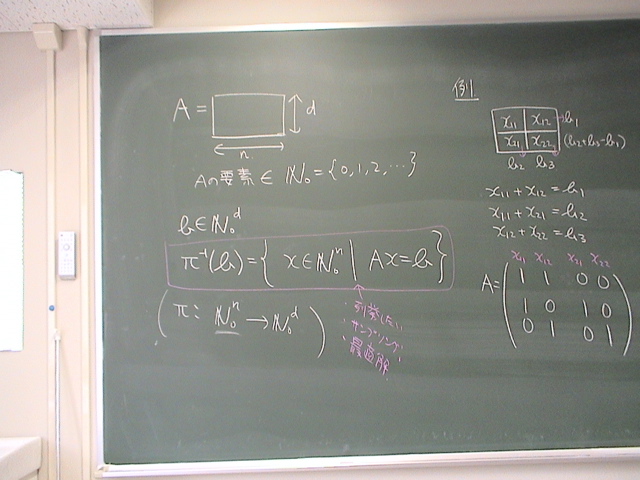 A = d
n
Aの要素 ∈ ℕ₀ = {0, 1, 2, …}
b ∈ ℕ₀ᵈ
π⁻¹(b) = { x ∈ ℕ₀ⁿ | Ax = b }
( π : ℕ₀ⁿ → ℕ₀ᵈ )
・列挙したい
・サンプリング
・最適解
例1
x₁₁ x₁₂ b₁
x₂₁ x₂₂ (b₂+b₃-b₁)
b₂ b₃
x₁₁ + x₁₂ = b₁
x₁₁ + x₂₁ = b₂
x₁₂ + x₂₂ = b₃
x₁₁ x₁₂ x₂₁ x₂₂
A = ( 1 1 0 0
1 0 1 0
0 1 0 1 )